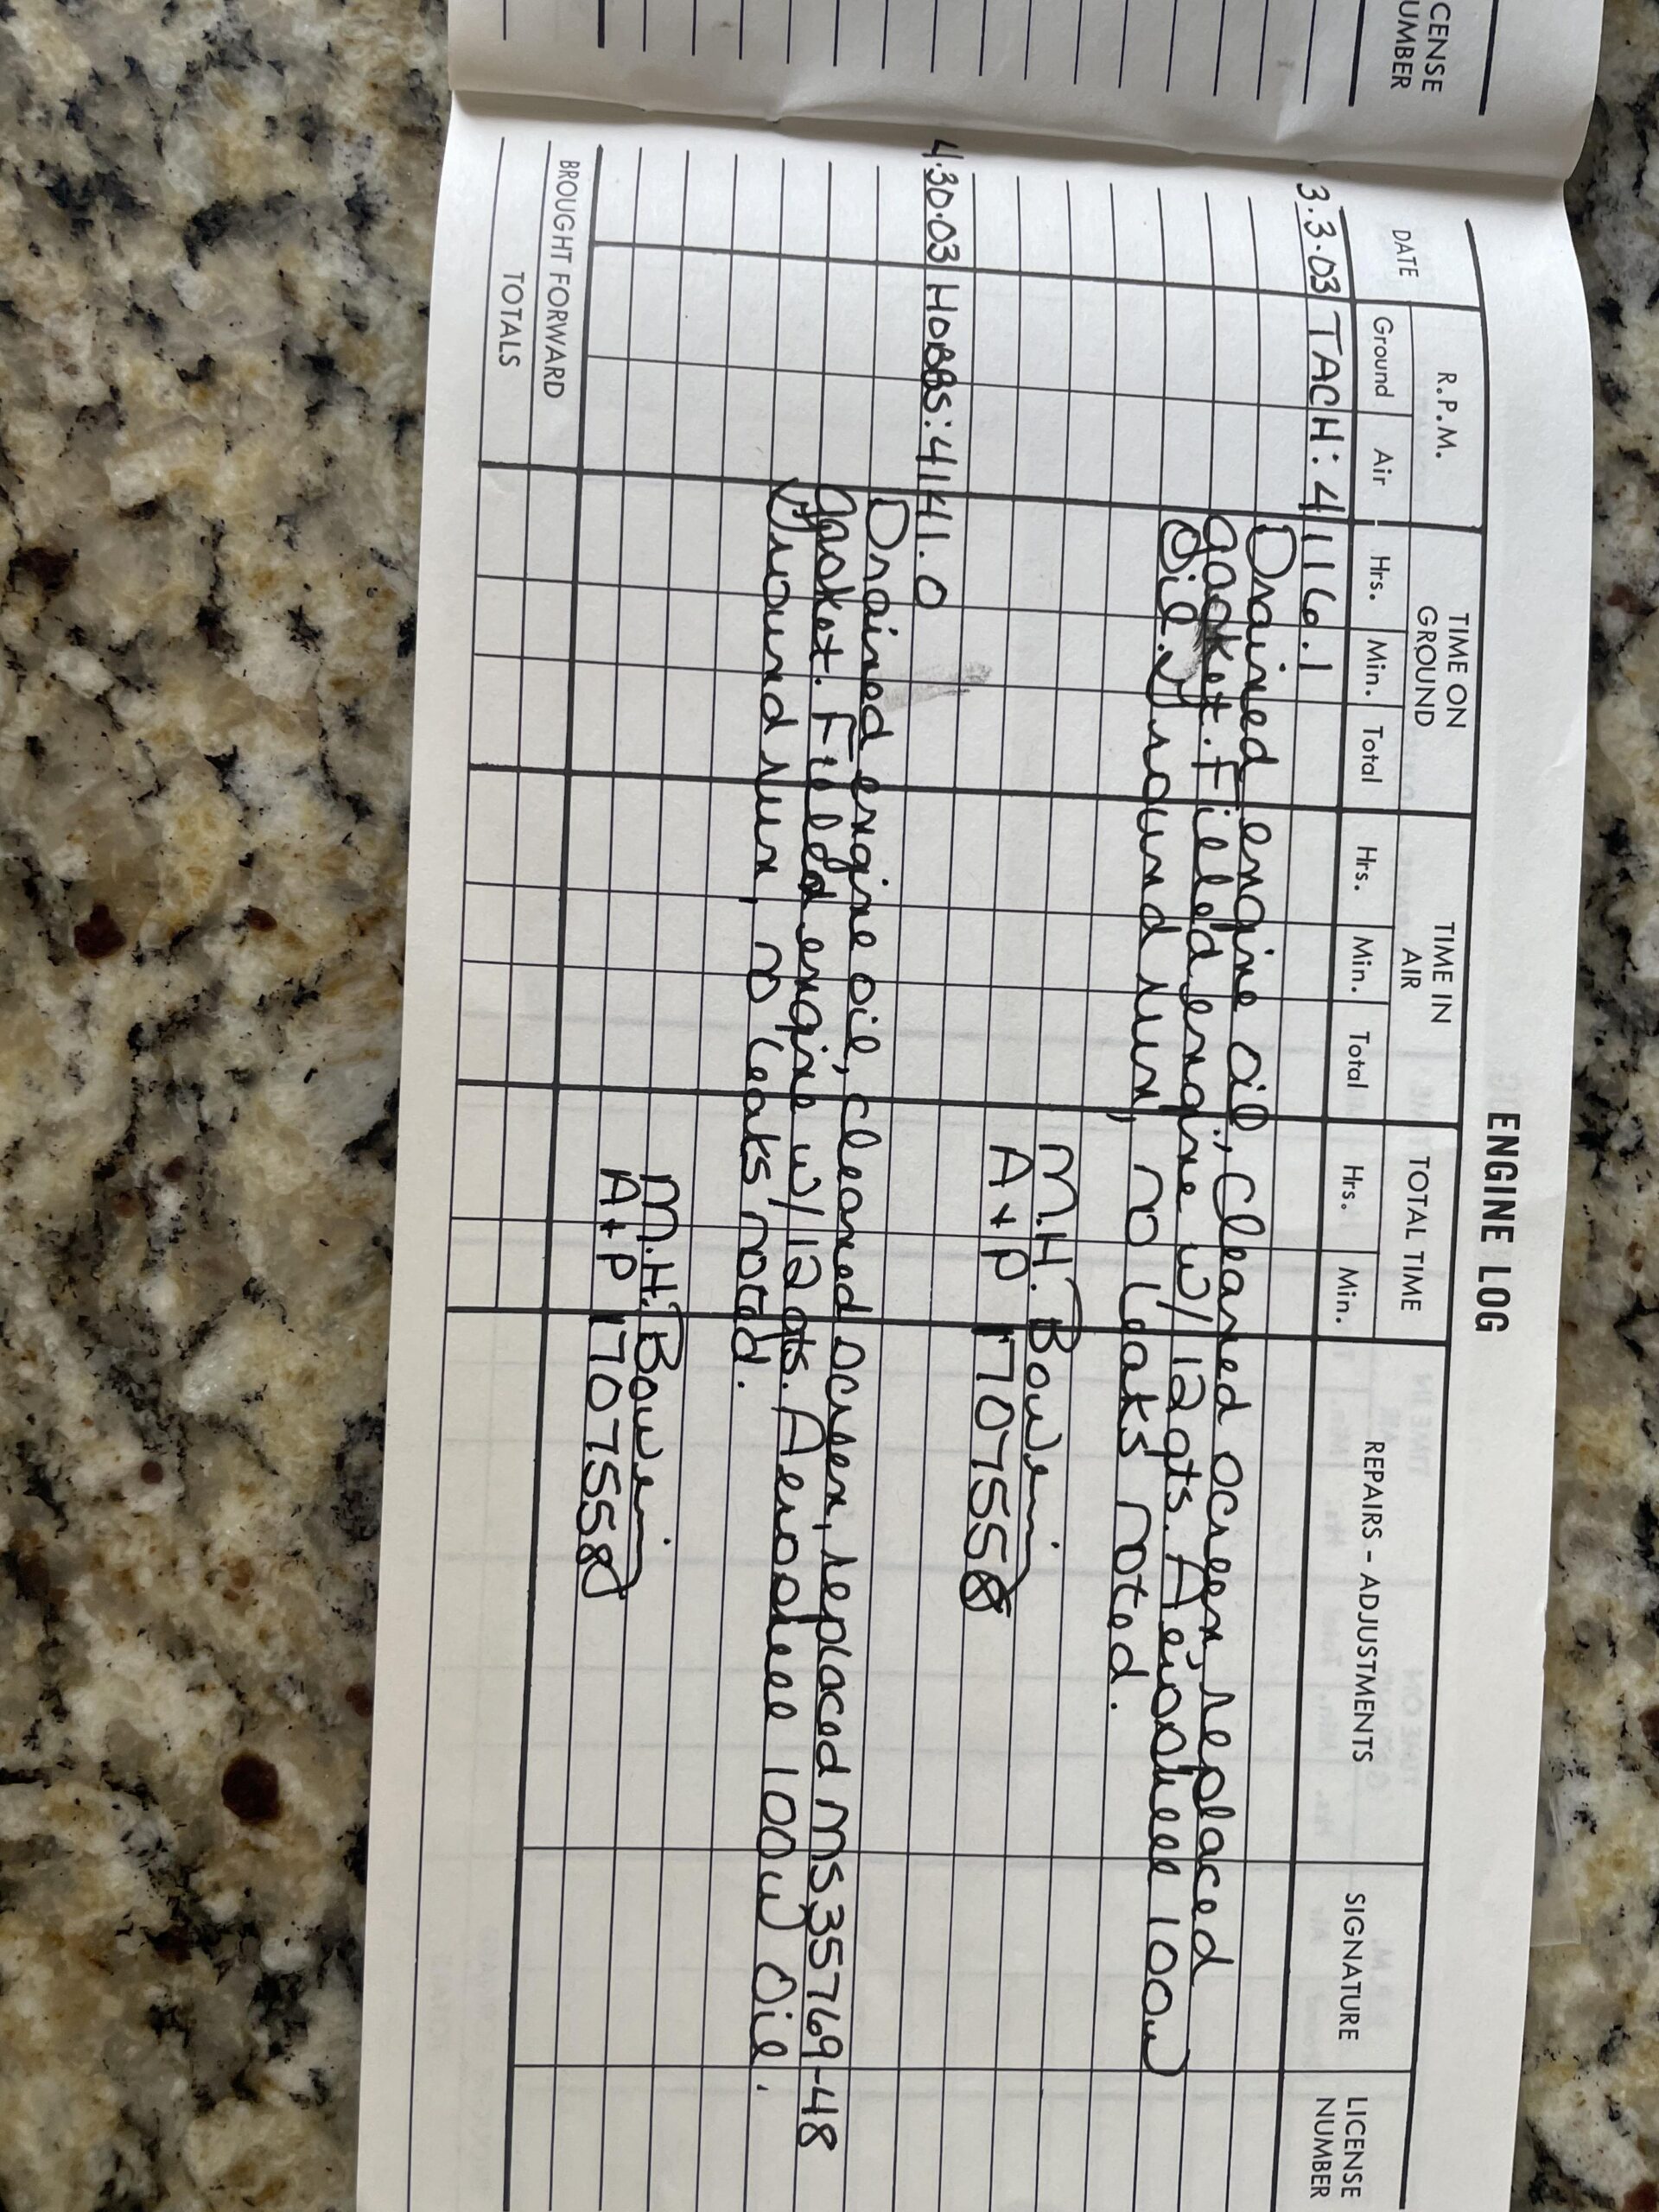 CENSE
UMBER
ENGINE LOG
DATE R.P.M. TIME ON GROUND TIME IN AIR TOTAL TIME REPAIRS - ADJUSTMENTS SIGNATURE LICENSE NUMBER
Ground Air Hrs. Min. Total Hrs. Min. Total Hrs. Min.
3.3.03 TACH: 4116.1
Drained engine oil, cleaned screen, replaced
gasket. Filled engine w/ 12 qts. Aeroshell 100w
Oil. Ground run, no leaks noted.
M.H. Bowen
A+P 1707558
4.30.03 HOBBS: 4141.0
Drained engine oil, cleaned screen, replaced MS35769-48
gasket. Filled engine w/ 12 qts. Aeroshell 100w Oil.
Ground run, no leaks noted.
M.H. Bowen
A+P 1707558
BROUGHT FORWARD
TOTALS